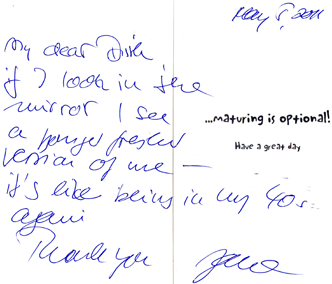 May 5, 2011
My dear Dirk
if I look in the
mirror I see
a younger fresher
version of me —
it's like being in my 40s
again
Thank you
Jana
...maturing is optional!
Have a great day